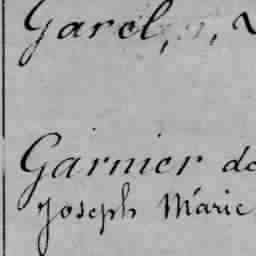 Garel,
Garnier de
Joseph Marie